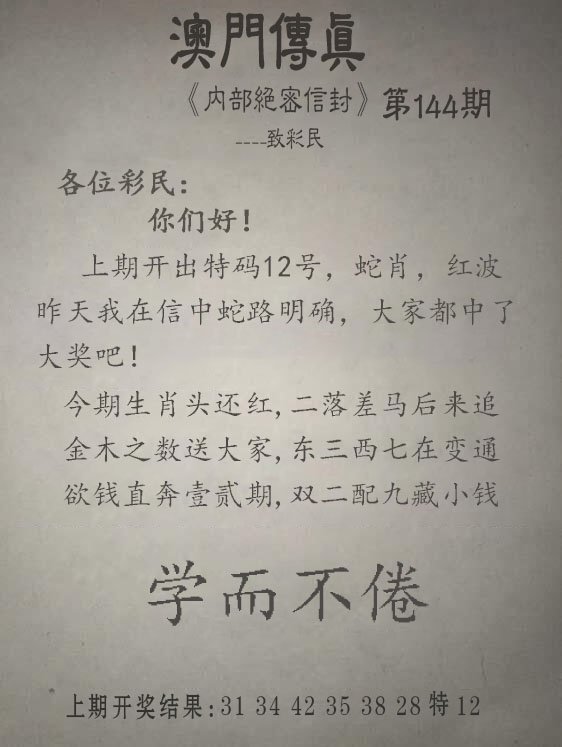 澳門傳真
《内部絕密信封》第144期
----致彩民
各位彩民：
你们好！
上期开出特码12号，蛇肖，红波
昨天我在信中蛇路明确，大家都中了
大奖吧！
今期生肖头还红,二落差马后来追
金木之数送大家,东三西七在变通
欲钱直奔壹贰期,双二配九藏小钱
学而不倦
上期开奖结果:31 34 42 35 38 28 特 12